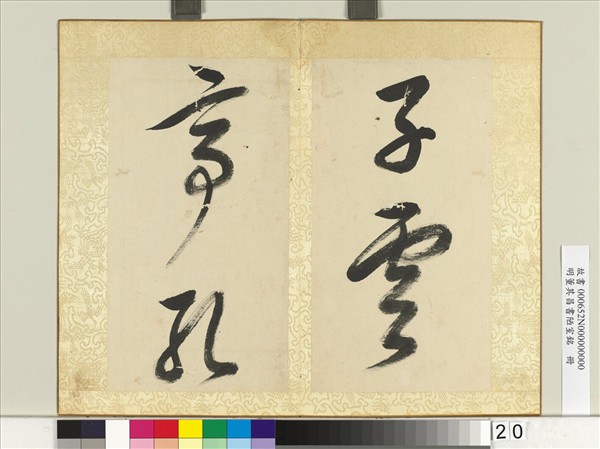 子雲
亭孔
故書000652N000000000
明董其昌書陋室銘 冊
20